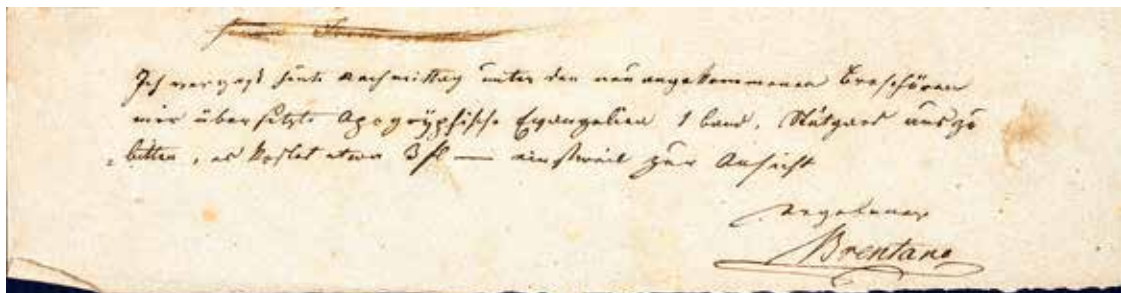 Ich vergaß heute Nachmittag unter den neu angekommenen Broschüren
mir übersetzte Apogryphische Evangelien 1 band, Stutgard aus zu
bitten, es kostet etwa 3 fl — einstweil zur Ansicht
ergebener
Brentano